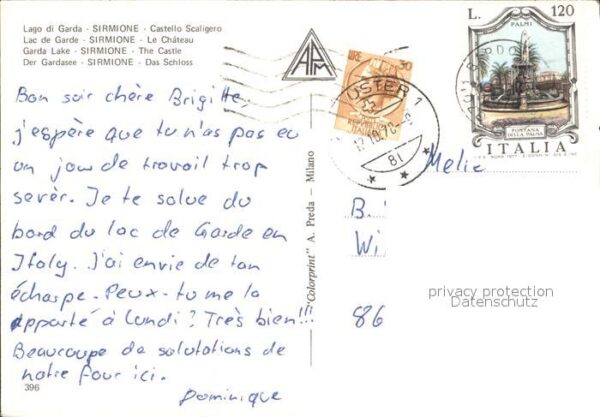 Lago di Garda - SIRMIONE - Castello Scaligero
Lac de Garde - SIRMIONE - Le Château
Garda Lake - SIRMIONE - The Castle
Der Gardasee - SIRMIONE - Das Schloss
APM
LIRE 30
L. 120
PALMI
FONTANA DELLA PALMA
ITALIA
USTER 1
Bon soir chère Brigitte,
j'espère que tu n'as pas eu
un jour de travail trop
sevèr. Je te salue du
bord du lac de Garde en
Italy. J'ai envie de ton
écharpe. Peux-tu me la
apporté à Lundi? Très bien!!!
Beaucoupe de salutations de
notre four ici.
Dominique
396
"Colorprint" A. Preda - Milano
Melle
B.
Wi
86
privacy protection
Datenschutz